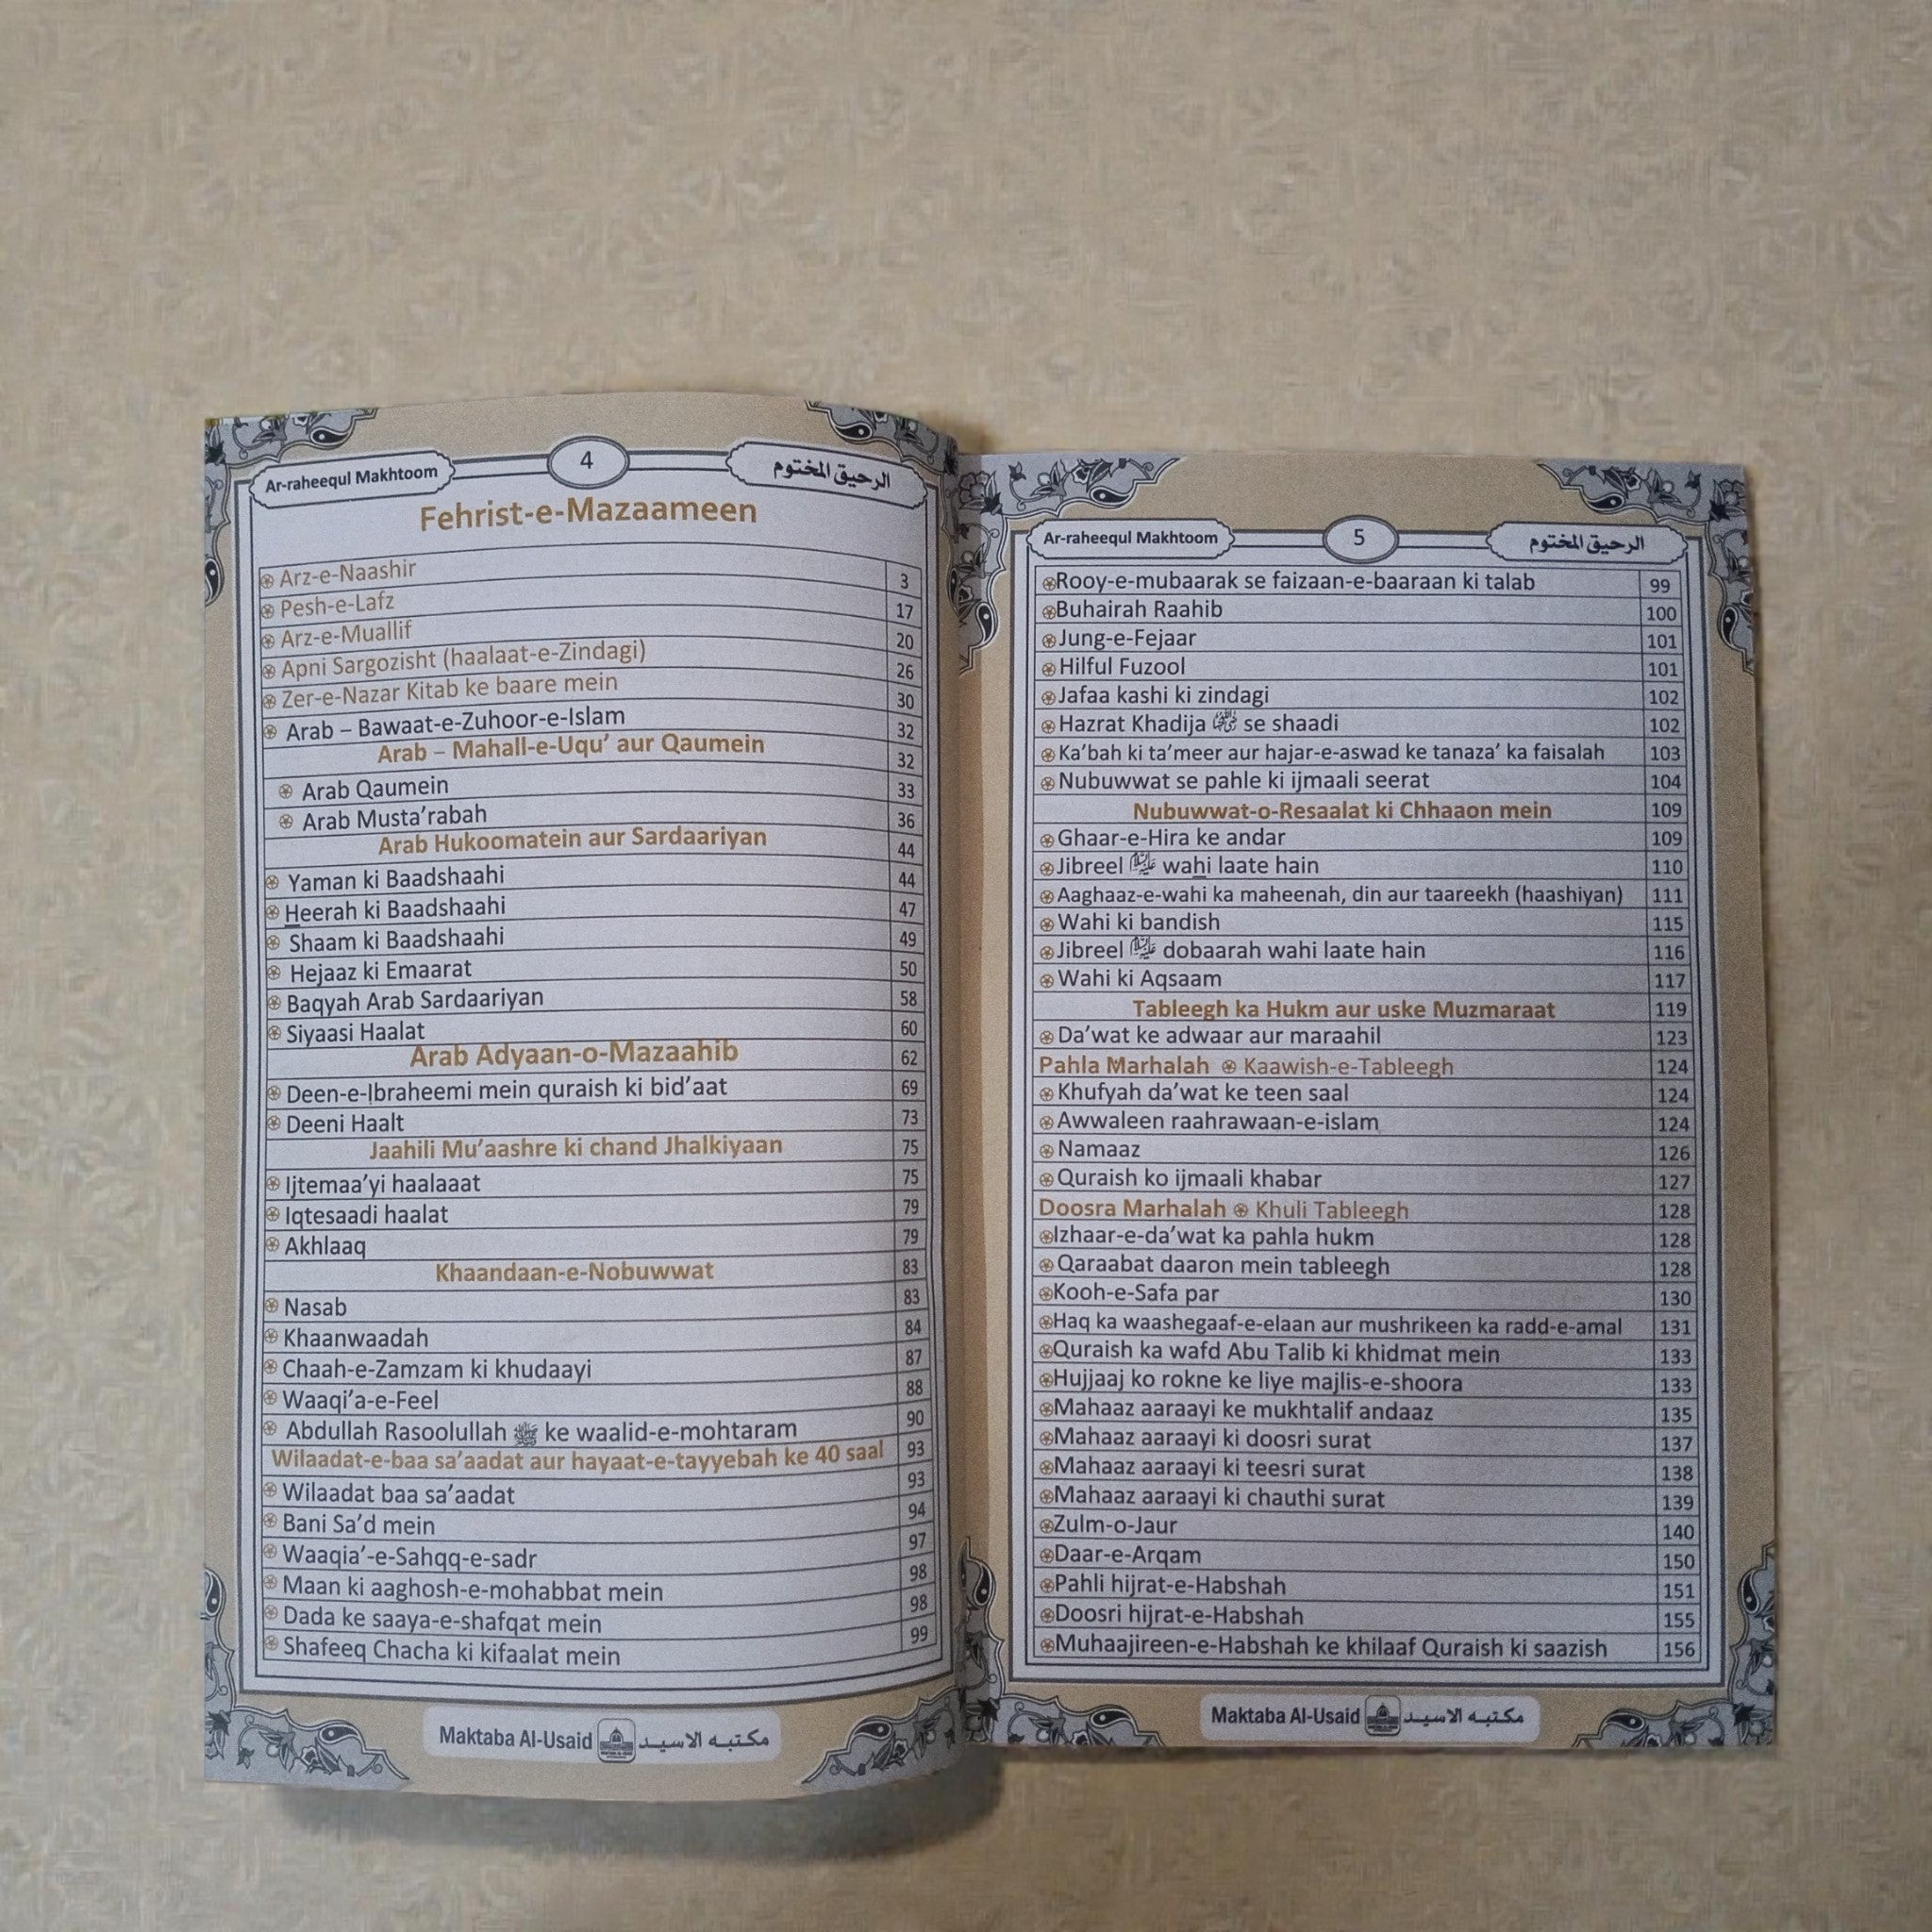 Ar-raheequl Makhtoom 4 الرحيق المختوم
Fehrist-e-Mazaameen
Arz-e-Naashir 3
Pesh-e-Lafz 17
Arz-e-Muallif 20
Apni Sargozisht (haalaat-e-Zindagi) 26
Zer-e-Nazar Kitab ke baare mein 30
Arab – Bawaat-e-Zuhoor-e-Islam 32
Arab – Mahall-e-Uqu’ aur Qaumein 32
Arab Qaumein 33
Arab Musta’rabah 36
Arab Hukoomatein aur Sardaariyan 44
Yaman ki Baadshaahi 44
Heerah ki Baadshaahi 47
Shaam ki Baadshaahi 49
Hejaaz ki Emaarat 50
Baqyah Arab Sardaariyan 58
Siyaasi Haalat 60
Arab Adyaan-o-Mazaahib 62
Deen-e-Ibraheemi mein quraish ki bid’aat 69
Deeni Haalt 73
Jaahili Mu’aashre ki chand Jhalkiyaan 75
Ijtemaa’yi haalaaat 75
Iqtesaadi haalat 79
Akhlaaq 79
Khaandaan-e-Nobuwwat 83
Nasab 83
Khaanwaadah 84
Chaah-e-Zamzam ki khudaayi 87
Waaqi’a-e-Feel 88
Abdullah Rasoolullah ﷺ ke waalid-e-mohtaram 90
Wilaadat-e-baa sa’aadat aur hayaat-e-tayyebah ke 40 saal 93
Wilaadat baa sa’aadat 93
Bani Sa’d mein 94
Waaqia’-e-Sahqq-e-sadr 97
Maan ki aaghosh-e-mohabbat mein 98
Dada ke saaya-e-shafqat mein 98
Shafeeq Chacha ki kifaalat mein 99
Maktaba Al-Usaid مكتبه الاسيد
Ar-raheequl Makhtoom 5 الرحيق المختوم
Rooy-e-mubaarak se faizaan-e-baaraan ki talab 99
Buhairah Raahib 100
Jung-e-Fejaar 101
Hilful Fuzool 101
Jafaa kashi ki zindagi 102
Hazrat Khadija se shaadi 102
Ka’bah ki ta’meer aur hajar-e-aswad ke tanaza’ ka faisalah 103
Nubuwwat se pahle ki ijmaali seerat 104
Nubuwwat-o-Resaalat ki Chhaaon mein 109
Ghaar-e-Hira ke andar 109
Jibreel wahi laate hain 110
Aaghaaz-e-wahi ka maheenah, din aur taareekh (haashiyan) 111
Wahi ki bandish 115
Jibreel dobaarah wahi laate hain 116
Wahi ki Aqsaam 117
Tableegh ka Hukm aur uske Muzmaraat 119
Da’wat ke adwaar aur maraahil 123
Pahla Marhalah Kaawish-e-Tableegh 124
Khufyah da’wat ke teen saal 124
Awwaleen raahrawaan-e-islam 124
Namaaz 126
Quraish ko ijmaali khabar 127
Doosra Marhalah Khuli Tableegh 128
Izhaar-e-da’wat ka pahla hukm 128
Qaraabat daaron mein tableegh 128
Kooh-e-Safa par 130
Haq ka waashegaaf-e-elaan aur mushrikeen ka radd-e-amal 131
Quraish ka wafd Abu Talib ki khidmat mein 133
Hujjaaj ko rokne ke liye majlis-e-shoora 133
Mahaaz aaraayi ke mukhtalif andaaz 135
Mahaaz aaraayi ki doosri surat 137
Mahaaz aaraayi ki teesri surat 138
Mahaaz aaraayi ki chauthi surat 139
Zulm-o-Jaur 140
Daar-e-Arqam 150
Pahli hijrat-e-Habshah 151
Doosri hijrat-e-Habshah 155
Muhaajireen-e-Habshah ke khilaaf Quraish ki saazish 156
Maktaba Al-Usaid مكتبه الاسيد